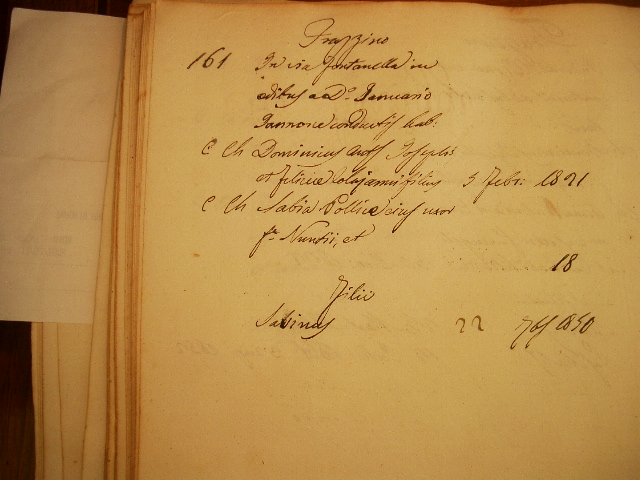 Frazzino
161 In via Fontanella in
ædibus a D.º Januario
Jannone conductis hab:
C Ch Dominicus Josephi
et Feliciæ Colajanni filius 3 Febr: 1821
C Ch Sabia Pollice eius uxor
f.ª Nuntii, et
18
Filii
Sabinus 22 7bs 1850